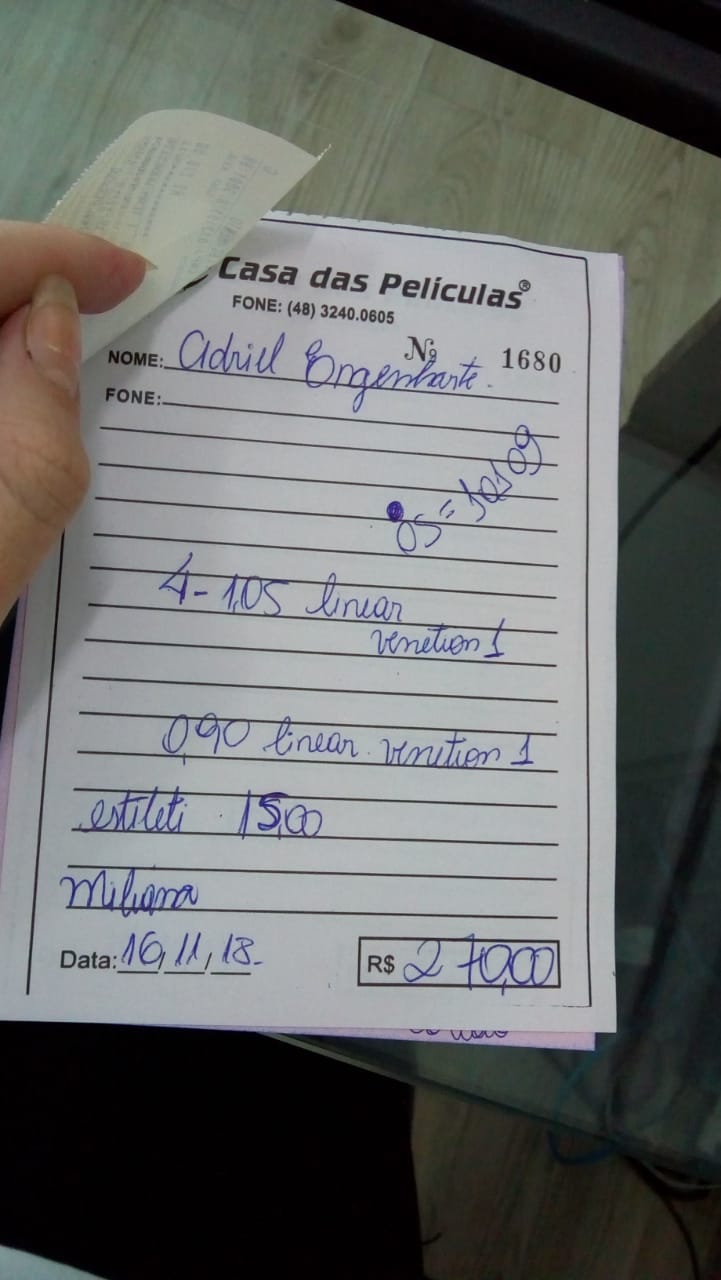 Casa das Películas®
FONE: (48) 3240.0605
Nº 1680
NOME: Adriel Engenharte.
FONE:
05 = 10109
4 - 1,05 linear
venetion 1
0,90 linear. venetion 1
estileti 15,00
Miliana
Data: 16, 11, 18.
R$ 270,00